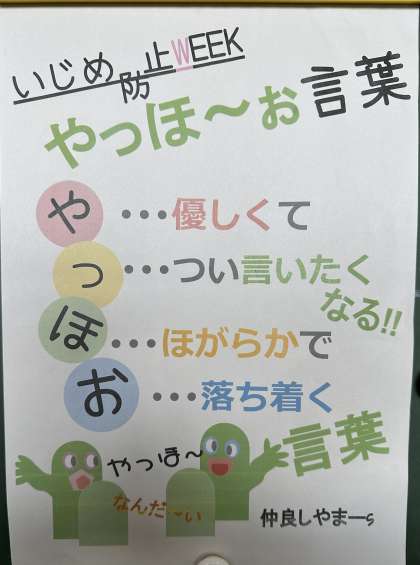 いじめ防止WEEK
やっほ〜お言葉
や・・・優しくて
っ・・・つい言いたく
なる!!
ほ・・・ほがらかで
お・・・落ち着く
言葉
やっほ〜
なんだ〜い
仲良しやまーs